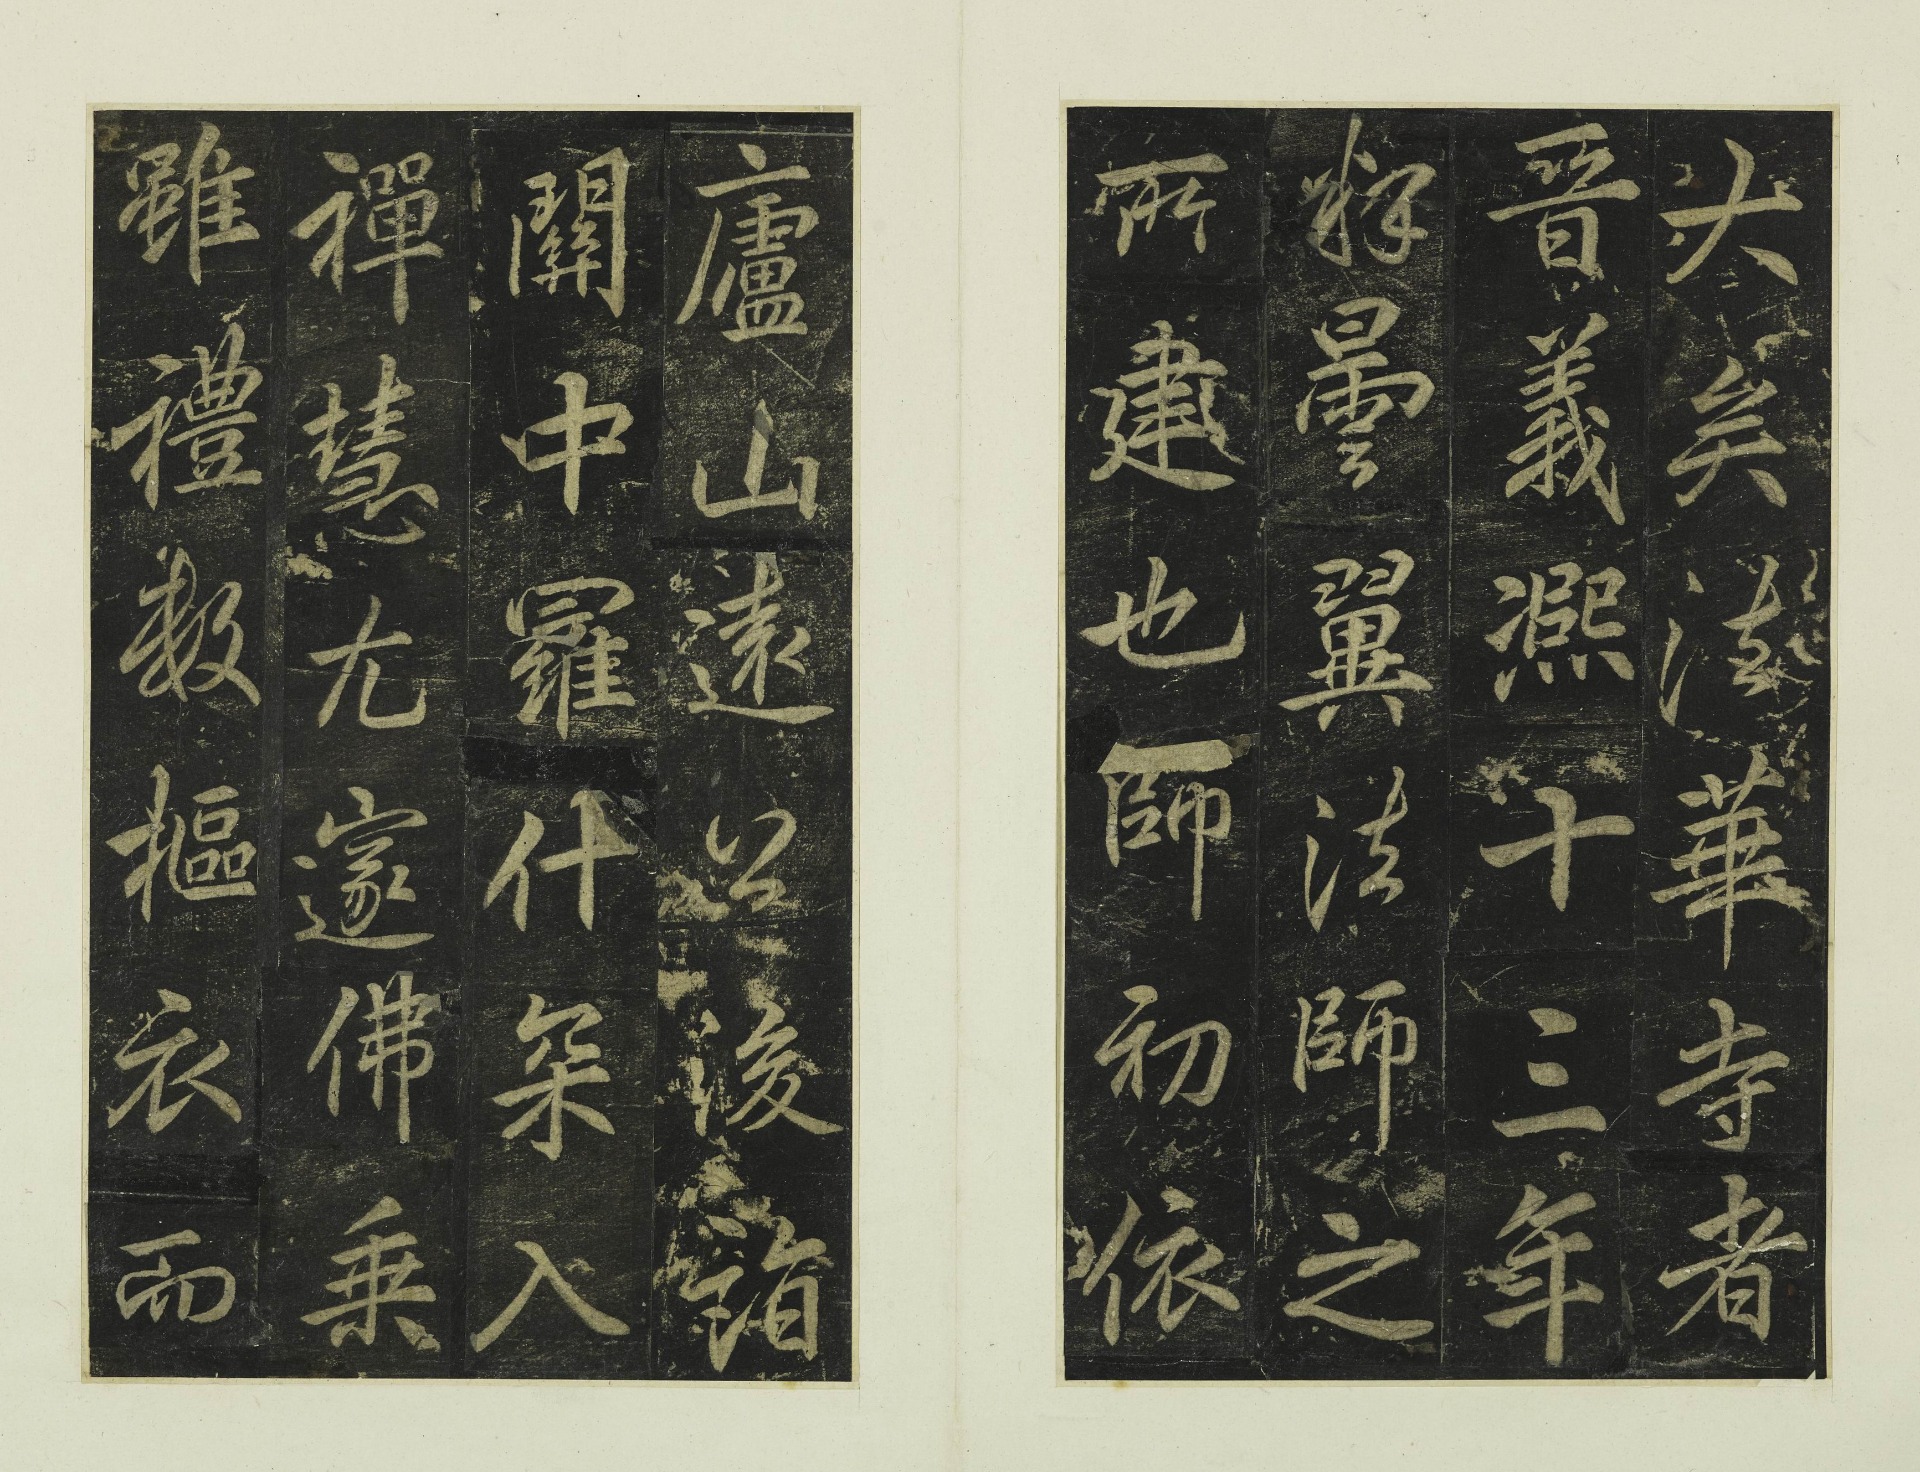 大矣法華寺者
晉義熙十三年
釋曇翼法師之
所建也師初依
廬山遠公後詣
關中羅什架入
禪慧尤邃佛乘
雖禮數樞衣而